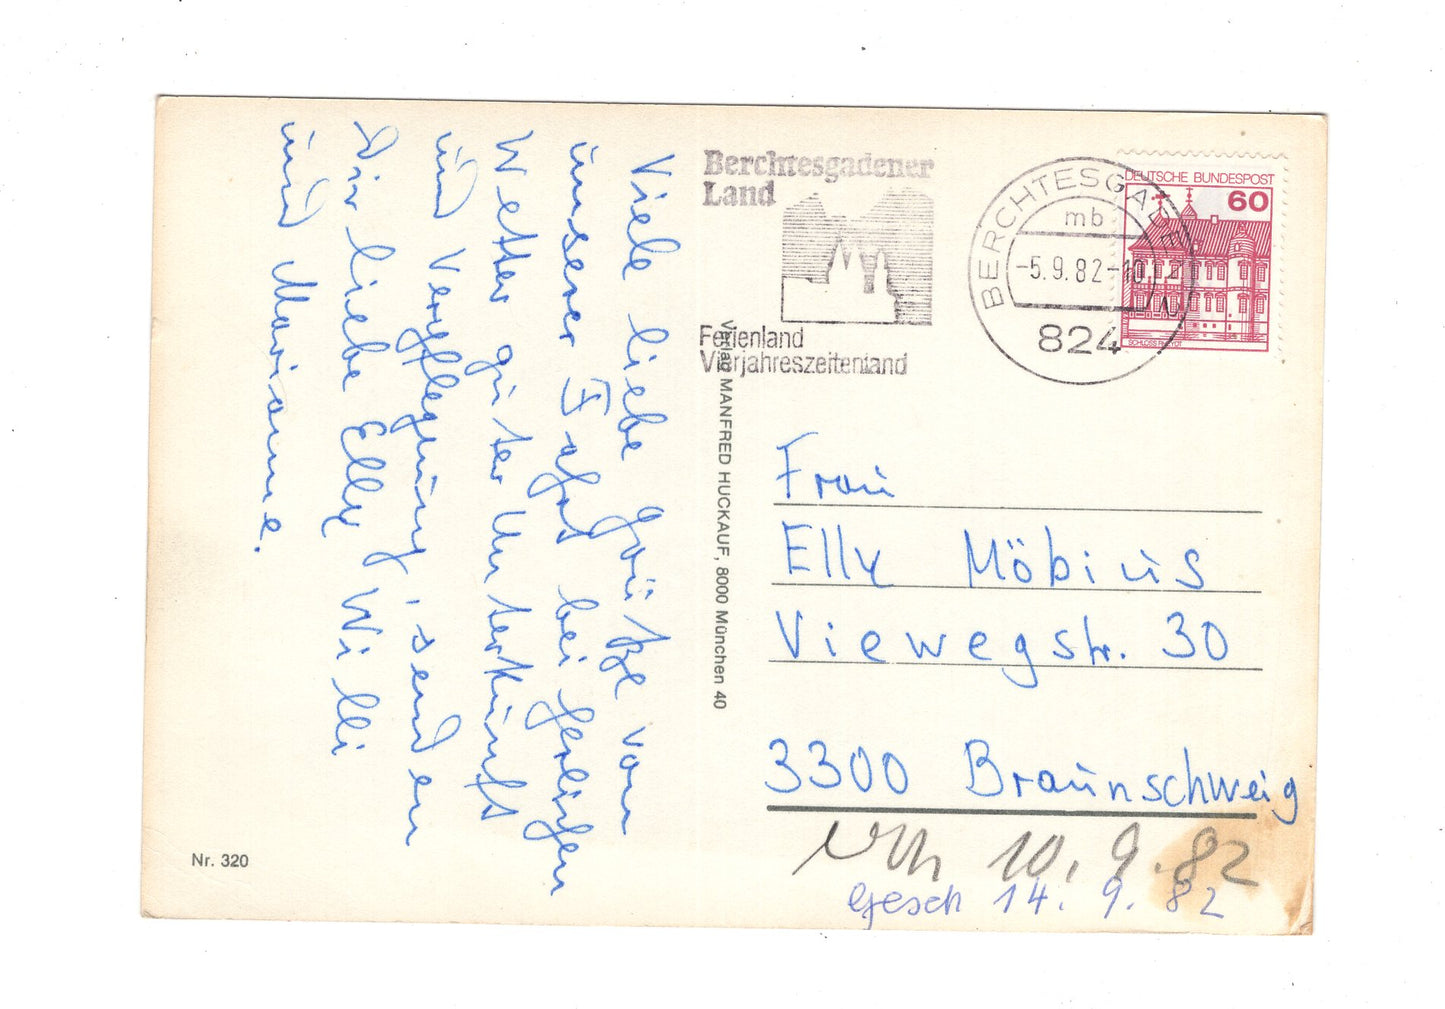 Viele liebe Grüße von
unserer Fahrt bei herlichen
Wetter guter Unterkunft
und Verpflegung, senden
Dir liebe Elly Willi
und Marianne.
Nr. 320
Verlag MANFRED HUCKAUF, 8000 München 40
Berchtesgadener
Land
Ferienland
Vierjahreszeitenland
BERCHTESGADEN
mb
-5.9.82-10
824
DEUTSCHE BUNDESPOST
60
SCHLOSS RHEYDT
Frau
Elly Möbius
Viewegstr. 30
3300 Braunschweig
10. 9. 82
Gesch 14. 9. 82